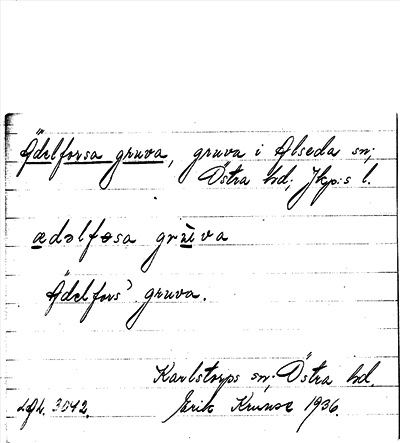 Ädelforsa gruva, gruva i Alseda sn;
Östra hd; Jkp:s l.
ædəlfɷsa grʉva
Ädelfors' gruva.
Karlstorps sn. Östra hd.
Lgh. 3042. Erik Krusse 1936.